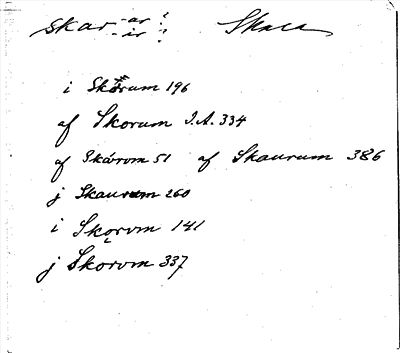 skar -ar ? -ir ? Skara
i Skórum 196
af Skorum I.A. 334
af Skárom 51 af Skaurum 386
j Skaurum 260
i Skǫrvm 141
j Skorvm 337